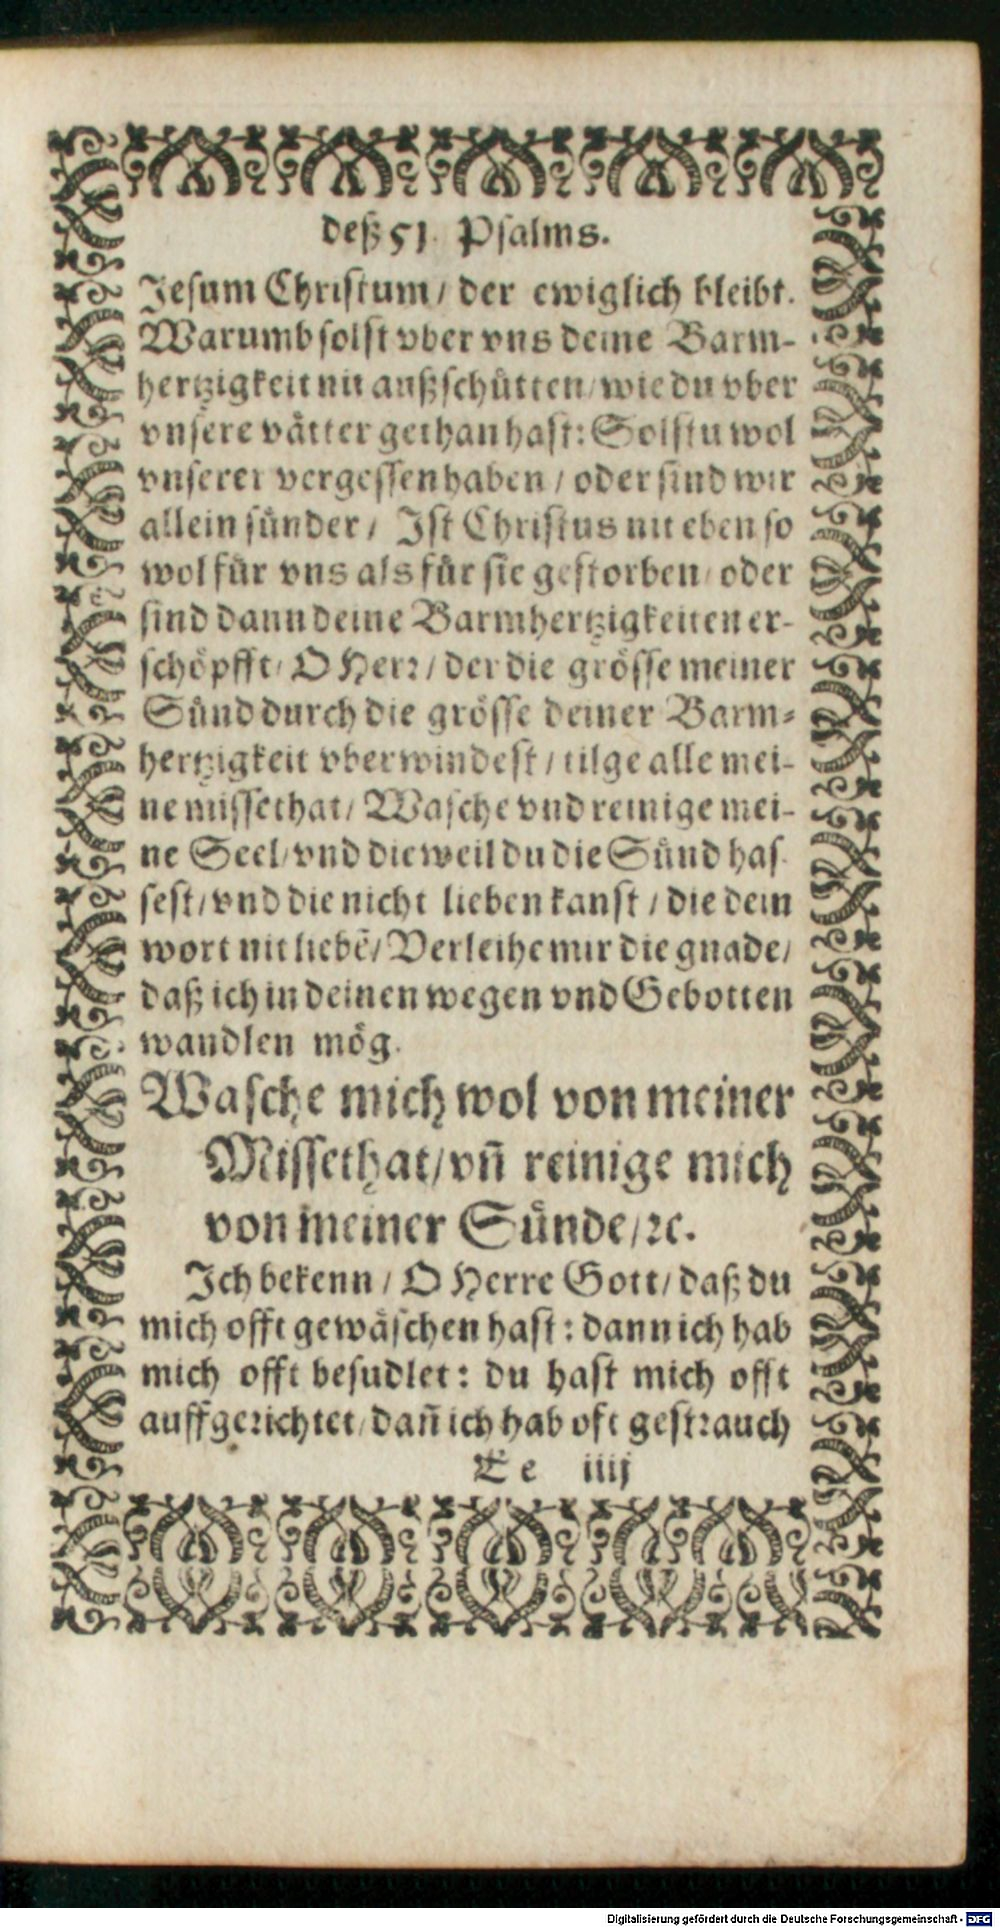 deß 51. Psalms.
Jesum Christum / der ewiglich bleibt.
Warumb solst vber vns deine Barm-
hertzigkeit nit außschütten / wie du vber
vnsere vätter gethan hast: Solstu wol
vnserer vergessen haben / oder sind wir
allein sünder / Ist Christus nit eben so
wol für vns als für sie gestorben / oder
sind dann deine Barmhertzigkeiten er-
schöpfft / O Herr / der die grösse meiner
Sünd durch die grösse deiner Barm-
hertzigkeit vberwindest / tilge alle mei-
ne missethat / Wasche vnd reinige mei-
ne Seel / vnd dieweil du die Sünd has-
sest / vnd die nicht lieben kanst / die dein
wort nit liebẽ / Verleihe mir die gnade /
daß ich in deinen wegen vnd Gebotten
wandlen mög.
Wasche mich wol von meiner
Missethat / vñ reinige mich
von meiner Sünde / ꝛc.
Ich bekenn / O Herre Gott / daß du
mich offt gewäschen hast: dann ich hab
mich offt besudlet: du hast mich offt
auffgerichtet / dañ ich hab oft gestrauch
Ee iiij
Digitalisierung gefördert durch die Deutsche Forschungsgemeinschaft - DFG